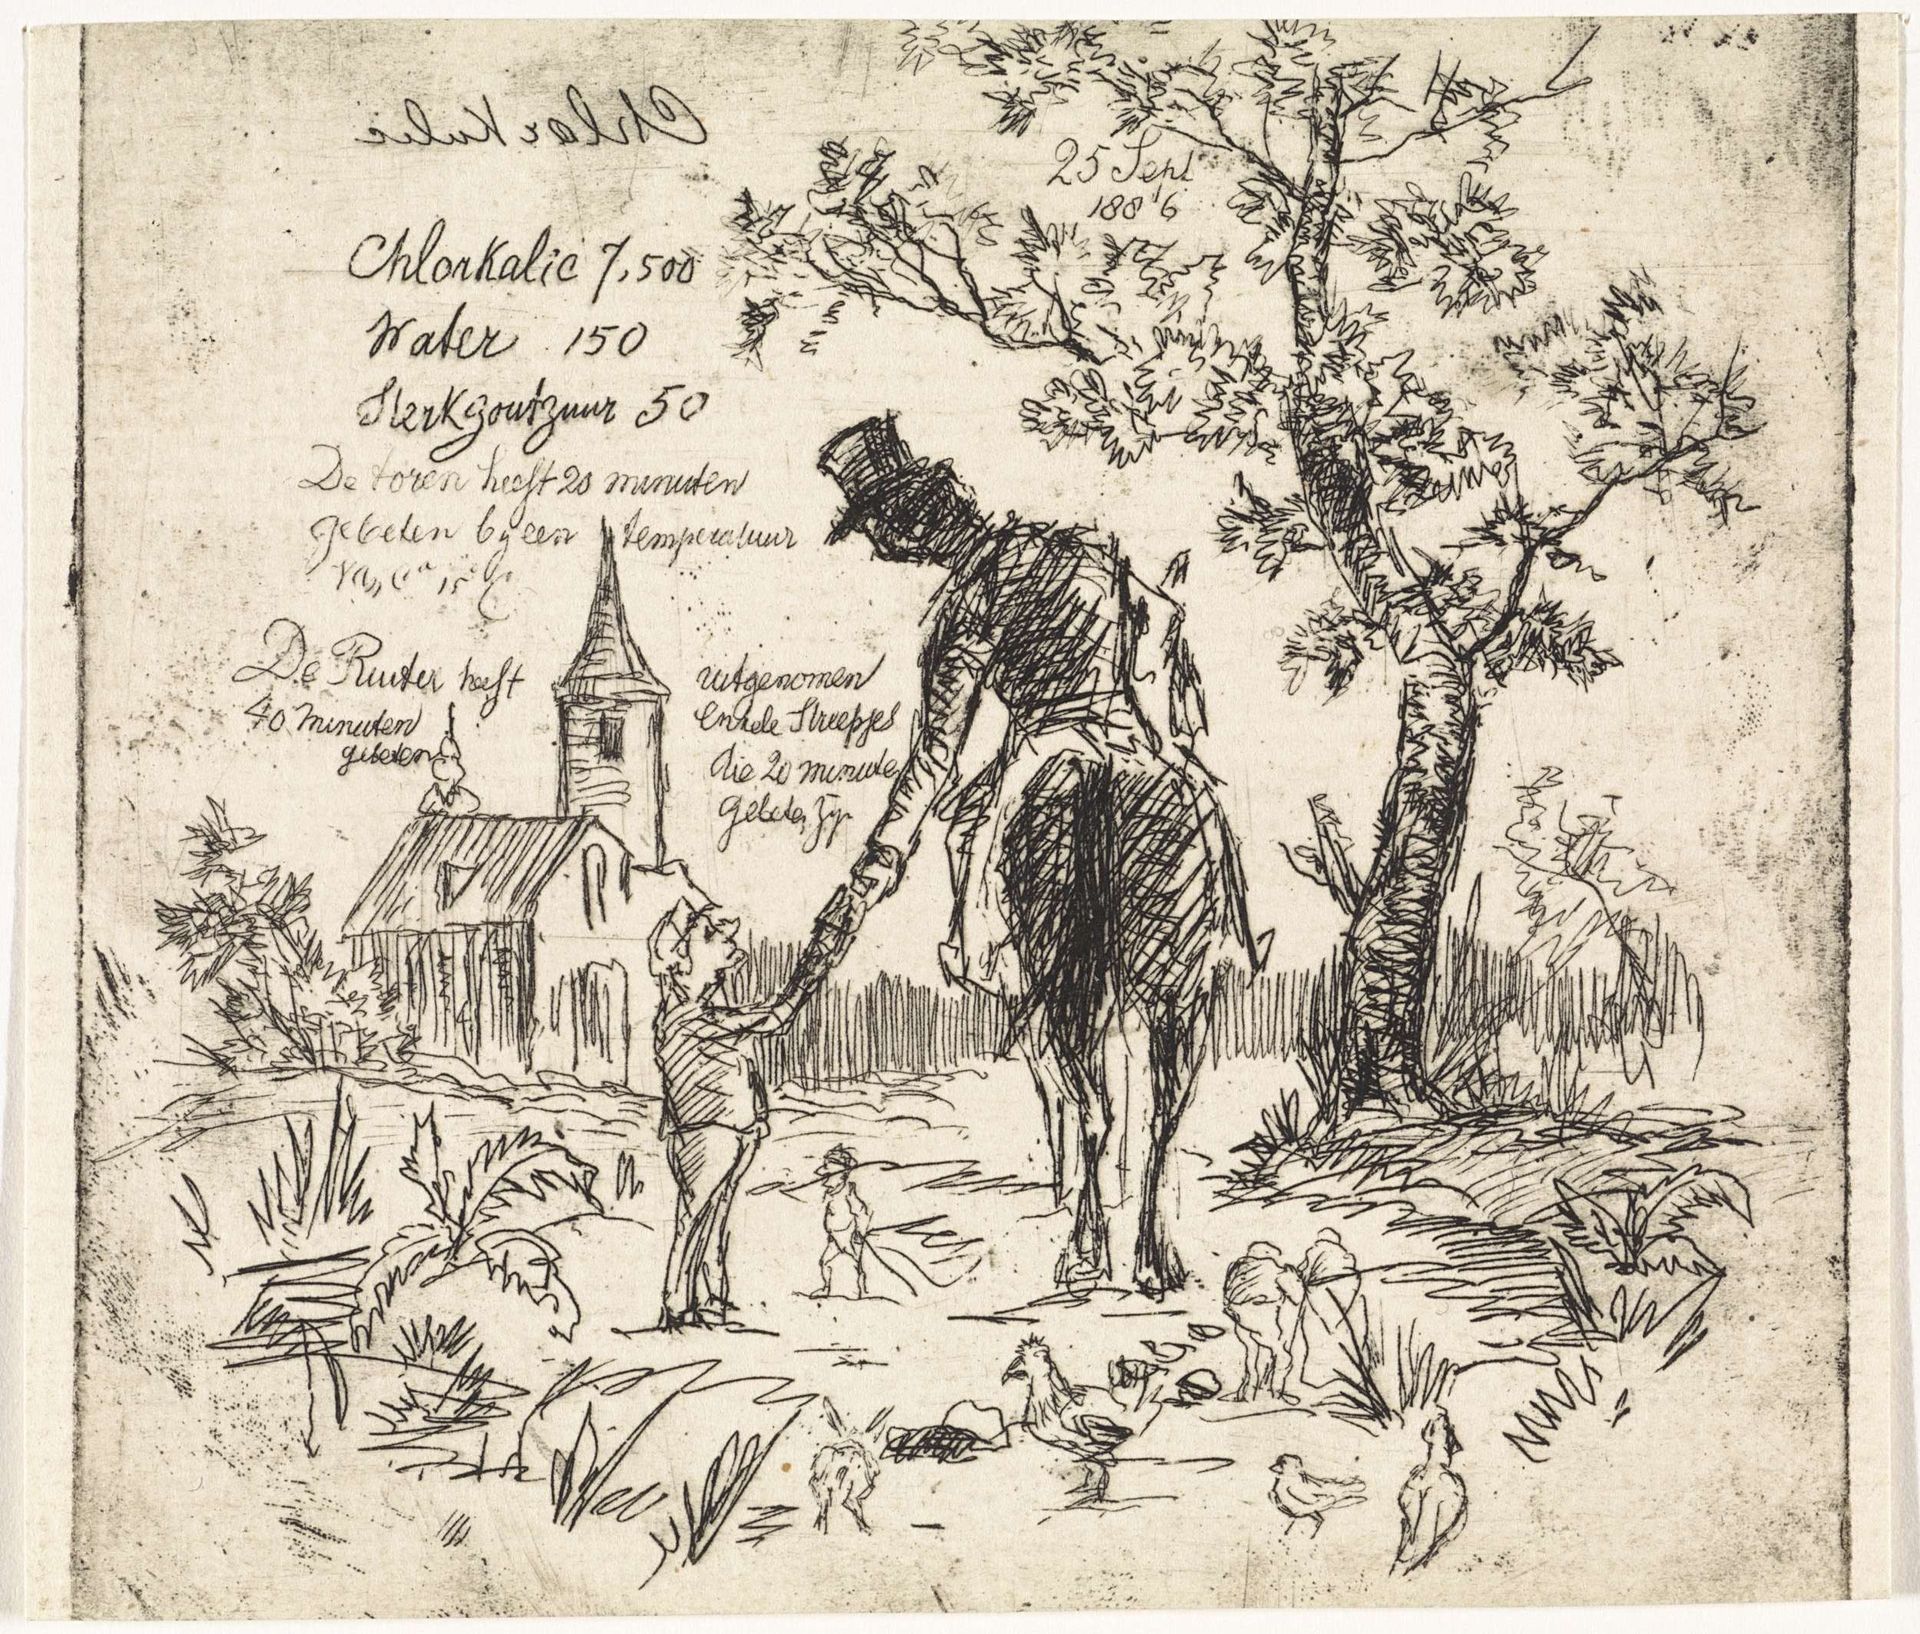 Chlorkalic
25 Sept
1886
Chlorkalic 7,500
Water 150
Sterkzoutzuur 50
De toren heeft 20 minuten
gebeten by een temperatuur
van 15
De Ruiter heeft
40 minuten
gebeten
uitgenomen
enkele Streepjes
die 20 minuten
gebeten zyn